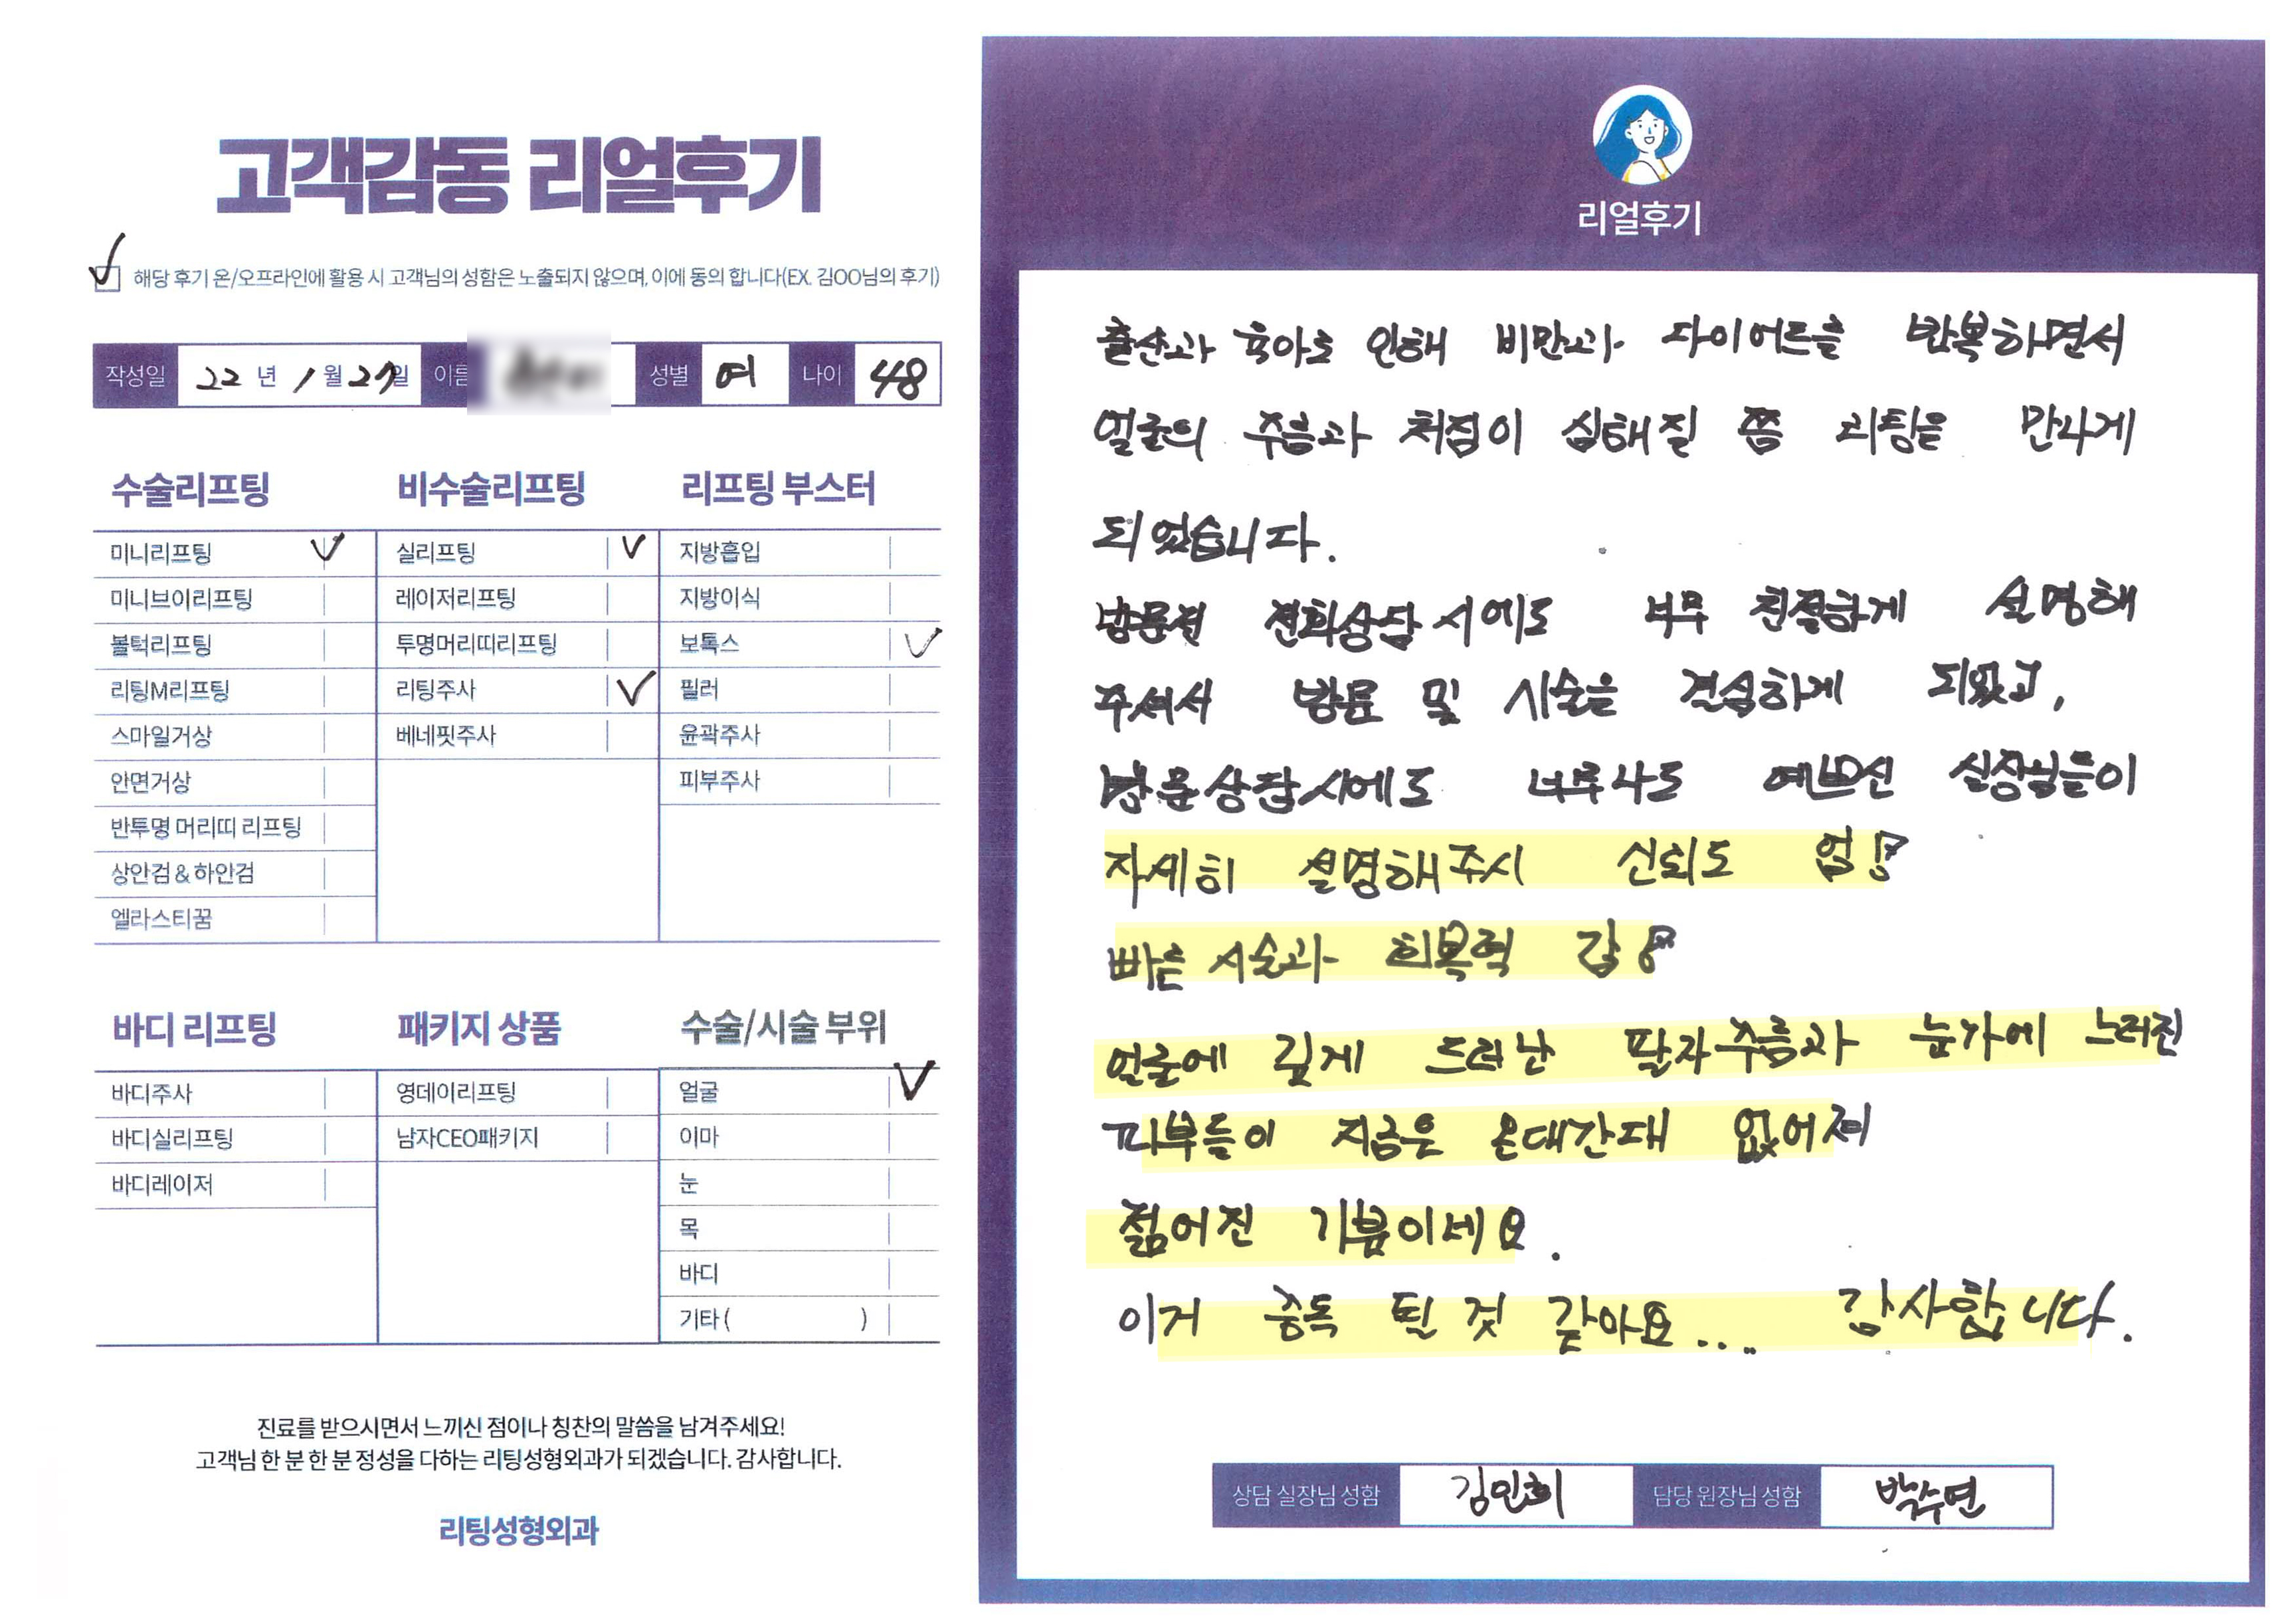 고객감동 리얼후기
해당 후기 온/오프라인에 활용 시 고객님의 성함은 노출되지 않으며, 이에 동의 합니다(EX. 김OO님의 후기)
작성일 22년 1월 27일 이름 성별 여 나이 48
수술리프팅
미니리프팅
미니브이리프팅
볼턱리프팅
리팅M리프팅
스마일거상
안면거상
반투명 머리띠 리프팅
상안검 & 하안검
엘라스티꿈
비수술리프팅
실리프팅
레이저리프팅
투명머리띠리프팅
리팅주사
베네핏주사
리프팅 부스터
지방흡입
지방이식
보톡스
필러
윤곽주사
피부주사
바디 리프팅
바디주사
바디실리프팅
바디레이저
패키지 상품
영데이리프팅
남자CEO패키지
수술/시술 부위
얼굴
이마
눈
목
바디
기타( )
진료를 받으시면서 느끼신 점이나 칭찬의 말씀을 남겨주세요!
고객님 한 분 한 분 정성을 다하는 리팅성형외과가 되겠습니다. 감사합니다.
리팅성형외과
리얼후기
출산과 육아로 인해 비만과 다이어트를 반복하면서
얼굴의 주름과 처짐이 심해질 쯤 리팅을 만나게
되었습니다.
방문전 전화상담시에도 너무 친절하게 설명해
주셔서 방문 및 시술을 결심하게 되었고,
방문상담시에도 너무나도 예쁘신 실장님들이
자세히 설명해주시 신뢰도 업!
빠른 시술과 회복력 갑!
얼굴에 깊게 드러난 팔자주름과 눈가에 느러진
피부들이 지금은 온데간데 없어져
젊어진 기분이네요.
이거 중독 될 것 같아요.... 감사합니다.
상담 실장님 성함 김민희 담당 원장님 성함 박수연